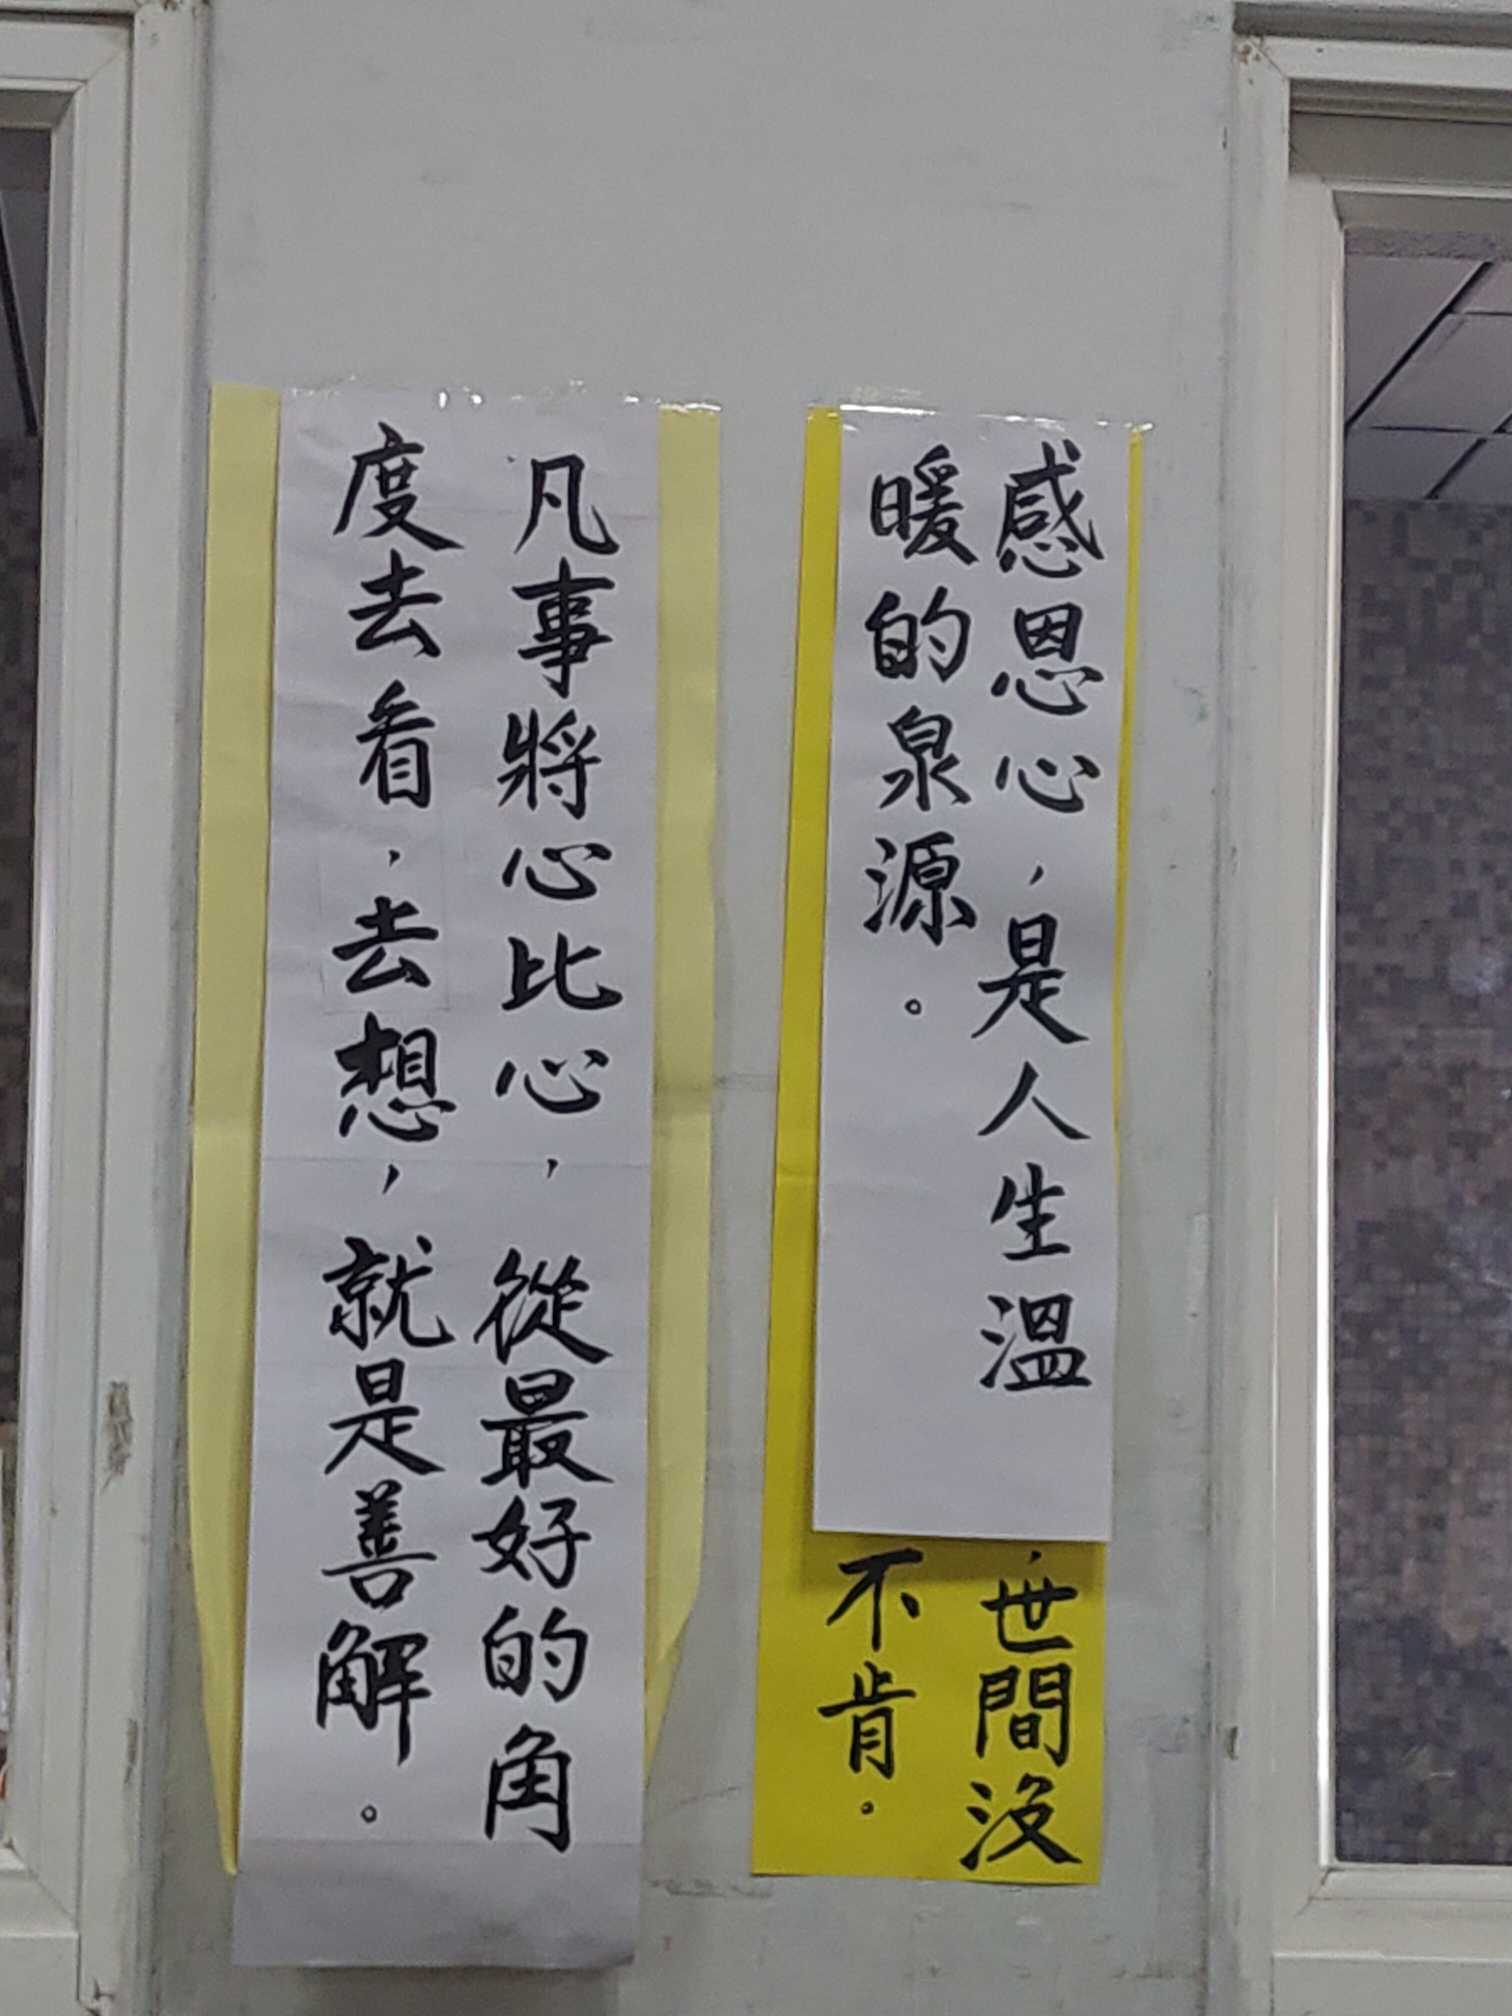 感恩心，是人生溫
暖的泉源。
，世間沒
不肯。
凡事將心比心，從最好的角
度去看，去想，就是善解。